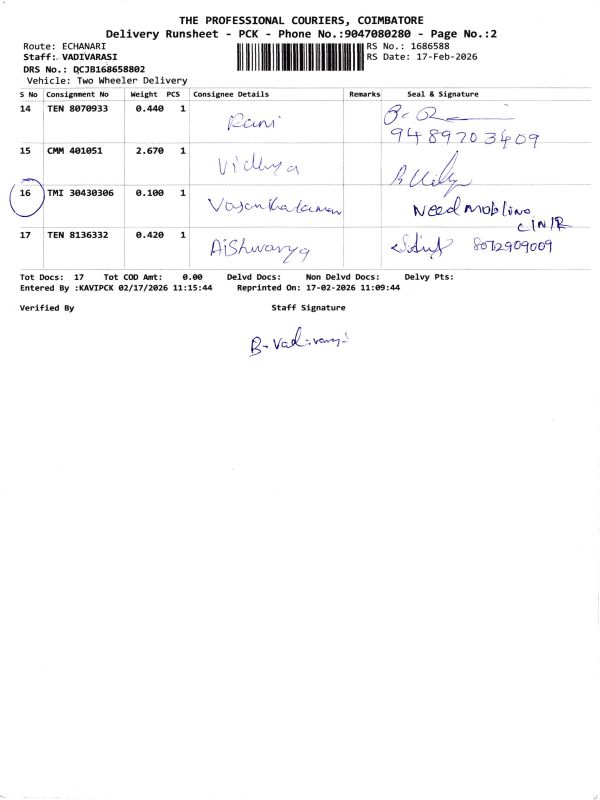 THE PROFESSIONAL COURIERS, COIMBATORE
Delivery Runsheet - PCK - Phone No.:9047080280 - Page No.:2
Route: ECHANARI
RS No.: 1686588
Staff: VADIVARASI
RS Date: 17-Feb-2026
DRS No.: DCJB168658802
Vehicle: Two Wheeler Delivery
S No Consignment No Weight PCS Consignee Details Remarks Seal & Signature
14 TEN 8070933 0.440 1 Rani
9489703409
15 CMM 401051 2.670 1 Vidhya
16 TMI 30430306 0.100 1 Vasanthakaman Need mobline
C/N/R
17 TEN 8136332 0.420 1 Aishwarya 8072909009
Tot Docs: 17 Tot COD Amt: 0.00 Delvd Docs: Non Delvd Docs: Delvy Pts:
Entered By :KAVIPCK 02/17/2026 11:15:44 Reprinted On: 17-02-2026 11:09:44
Verified By Staff Signature
B. Vadivarasi